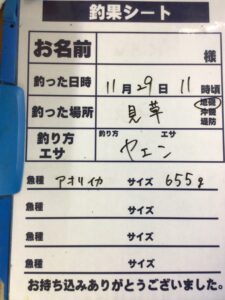 釣果シート
お名前 様
釣った日時 11月29日 11時頃
釣った場所 見草 地磯 沖磯 堤防
釣り方 エサ 釣り方 ヤエン エサ
魚種 アオリイカ サイズ 655g
魚種 サイズ
魚種 サイズ
魚種 サイズ
お持ち込みありがとうございました。